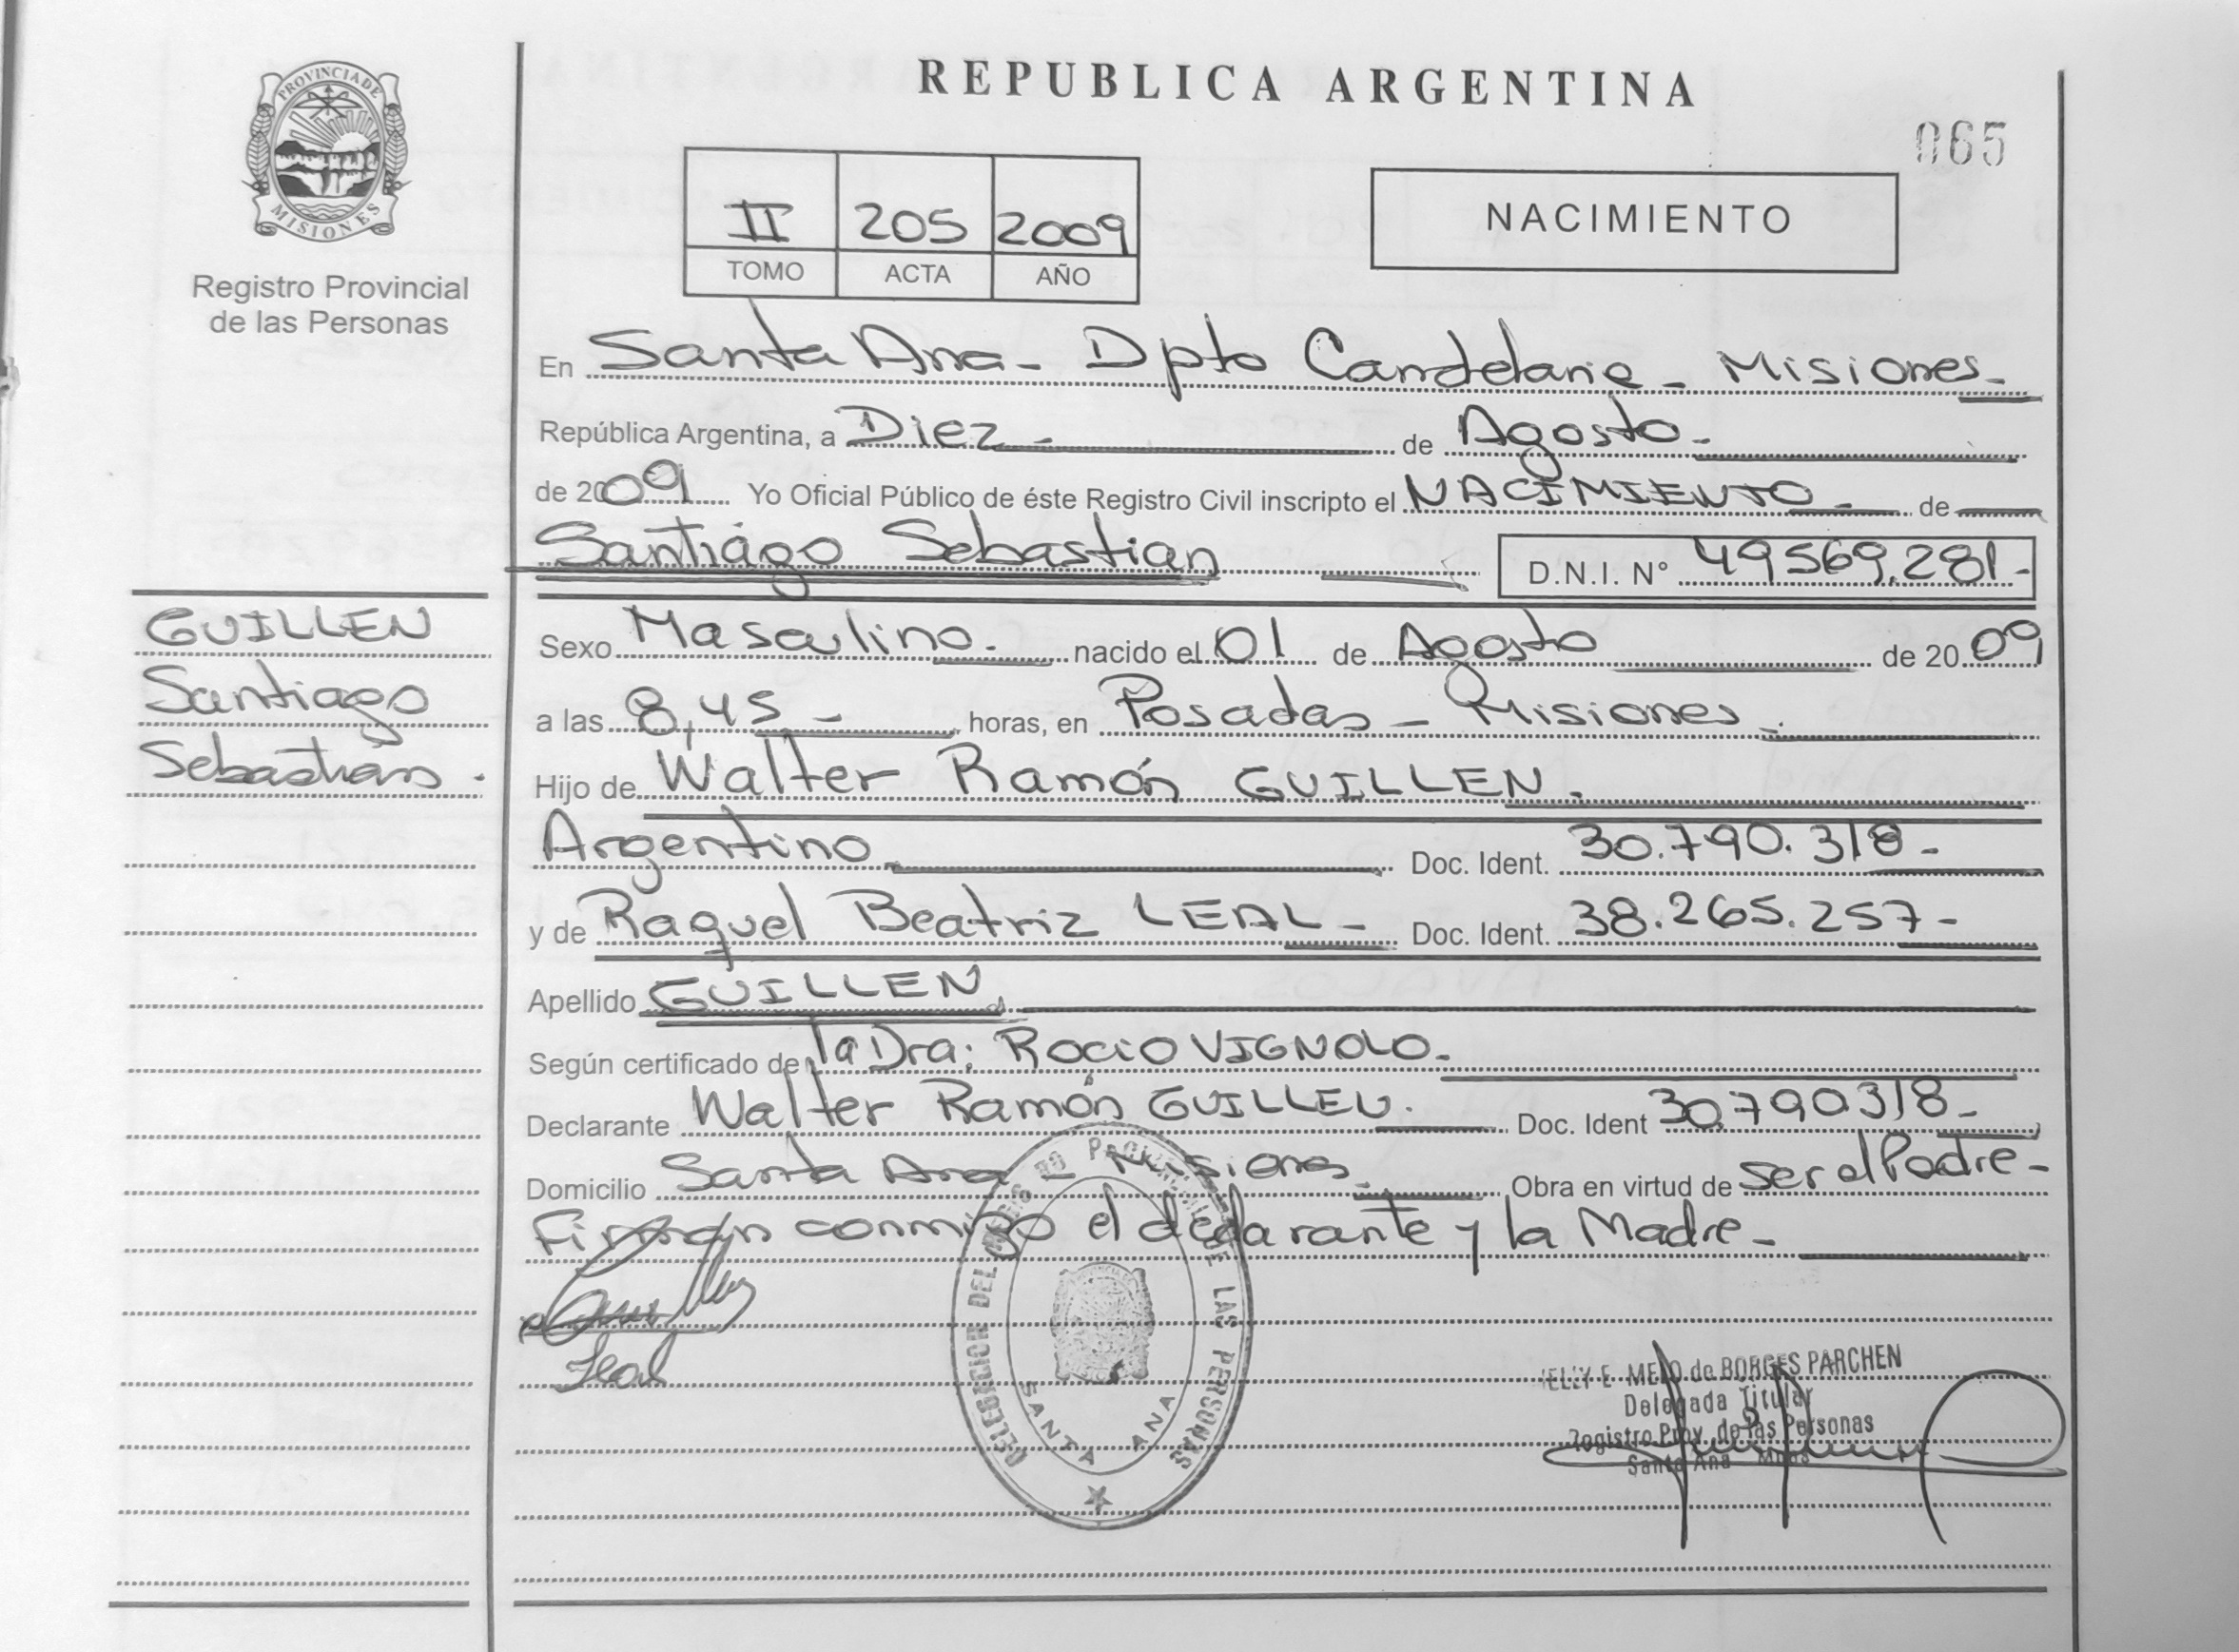 REPUBLICA ARGENTINA
065
PROVINCIA DE
MISIONES
Registro Provincial
de las Personas
II 205 2009
TOMO ACTA AÑO
NACIMIENTO
En Santa Ana - Dpto Candelaria - Misiones -
República Argentina, a Diez - de Agosto -
de 2009 Yo Oficial Público de éste Registro Civil inscripto el NACIMIENTO - de
Santiago Sebastian D.N.I. N° 49569.281 -
GUILLEN
Santiago
Sebastián .
Sexo Masculino - nacido el 01 de Agosto de 2009
a las 8,45 - horas, en Posadas - Misiones -
Hijo de Walter Ramón GUILLEN .
Argentino Doc. Ident. 30.790.318 -
y de Raquel Beatriz LEAL - Doc. Ident. 38.265.257 -
Apellido GUILLEN
Según certificado de la Dra; Rocio VIGNOLO -
Declarante Walter Ramón GUILLEN . Doc. Ident 30.790318 -
Domicilio Santa Ana - Misiones Obra en virtud de ser el Padre -
Firman conmigo el declarante y la Madre -
Leal
DELEGACION DEL REGISTRO PROVINCIAL DE LAS PERSONAS
SANTA ANA
E. MELO de BORGES PARCHEN
Delegada Titular
Registro Prov. de las Personas
Santa Ana Mnes